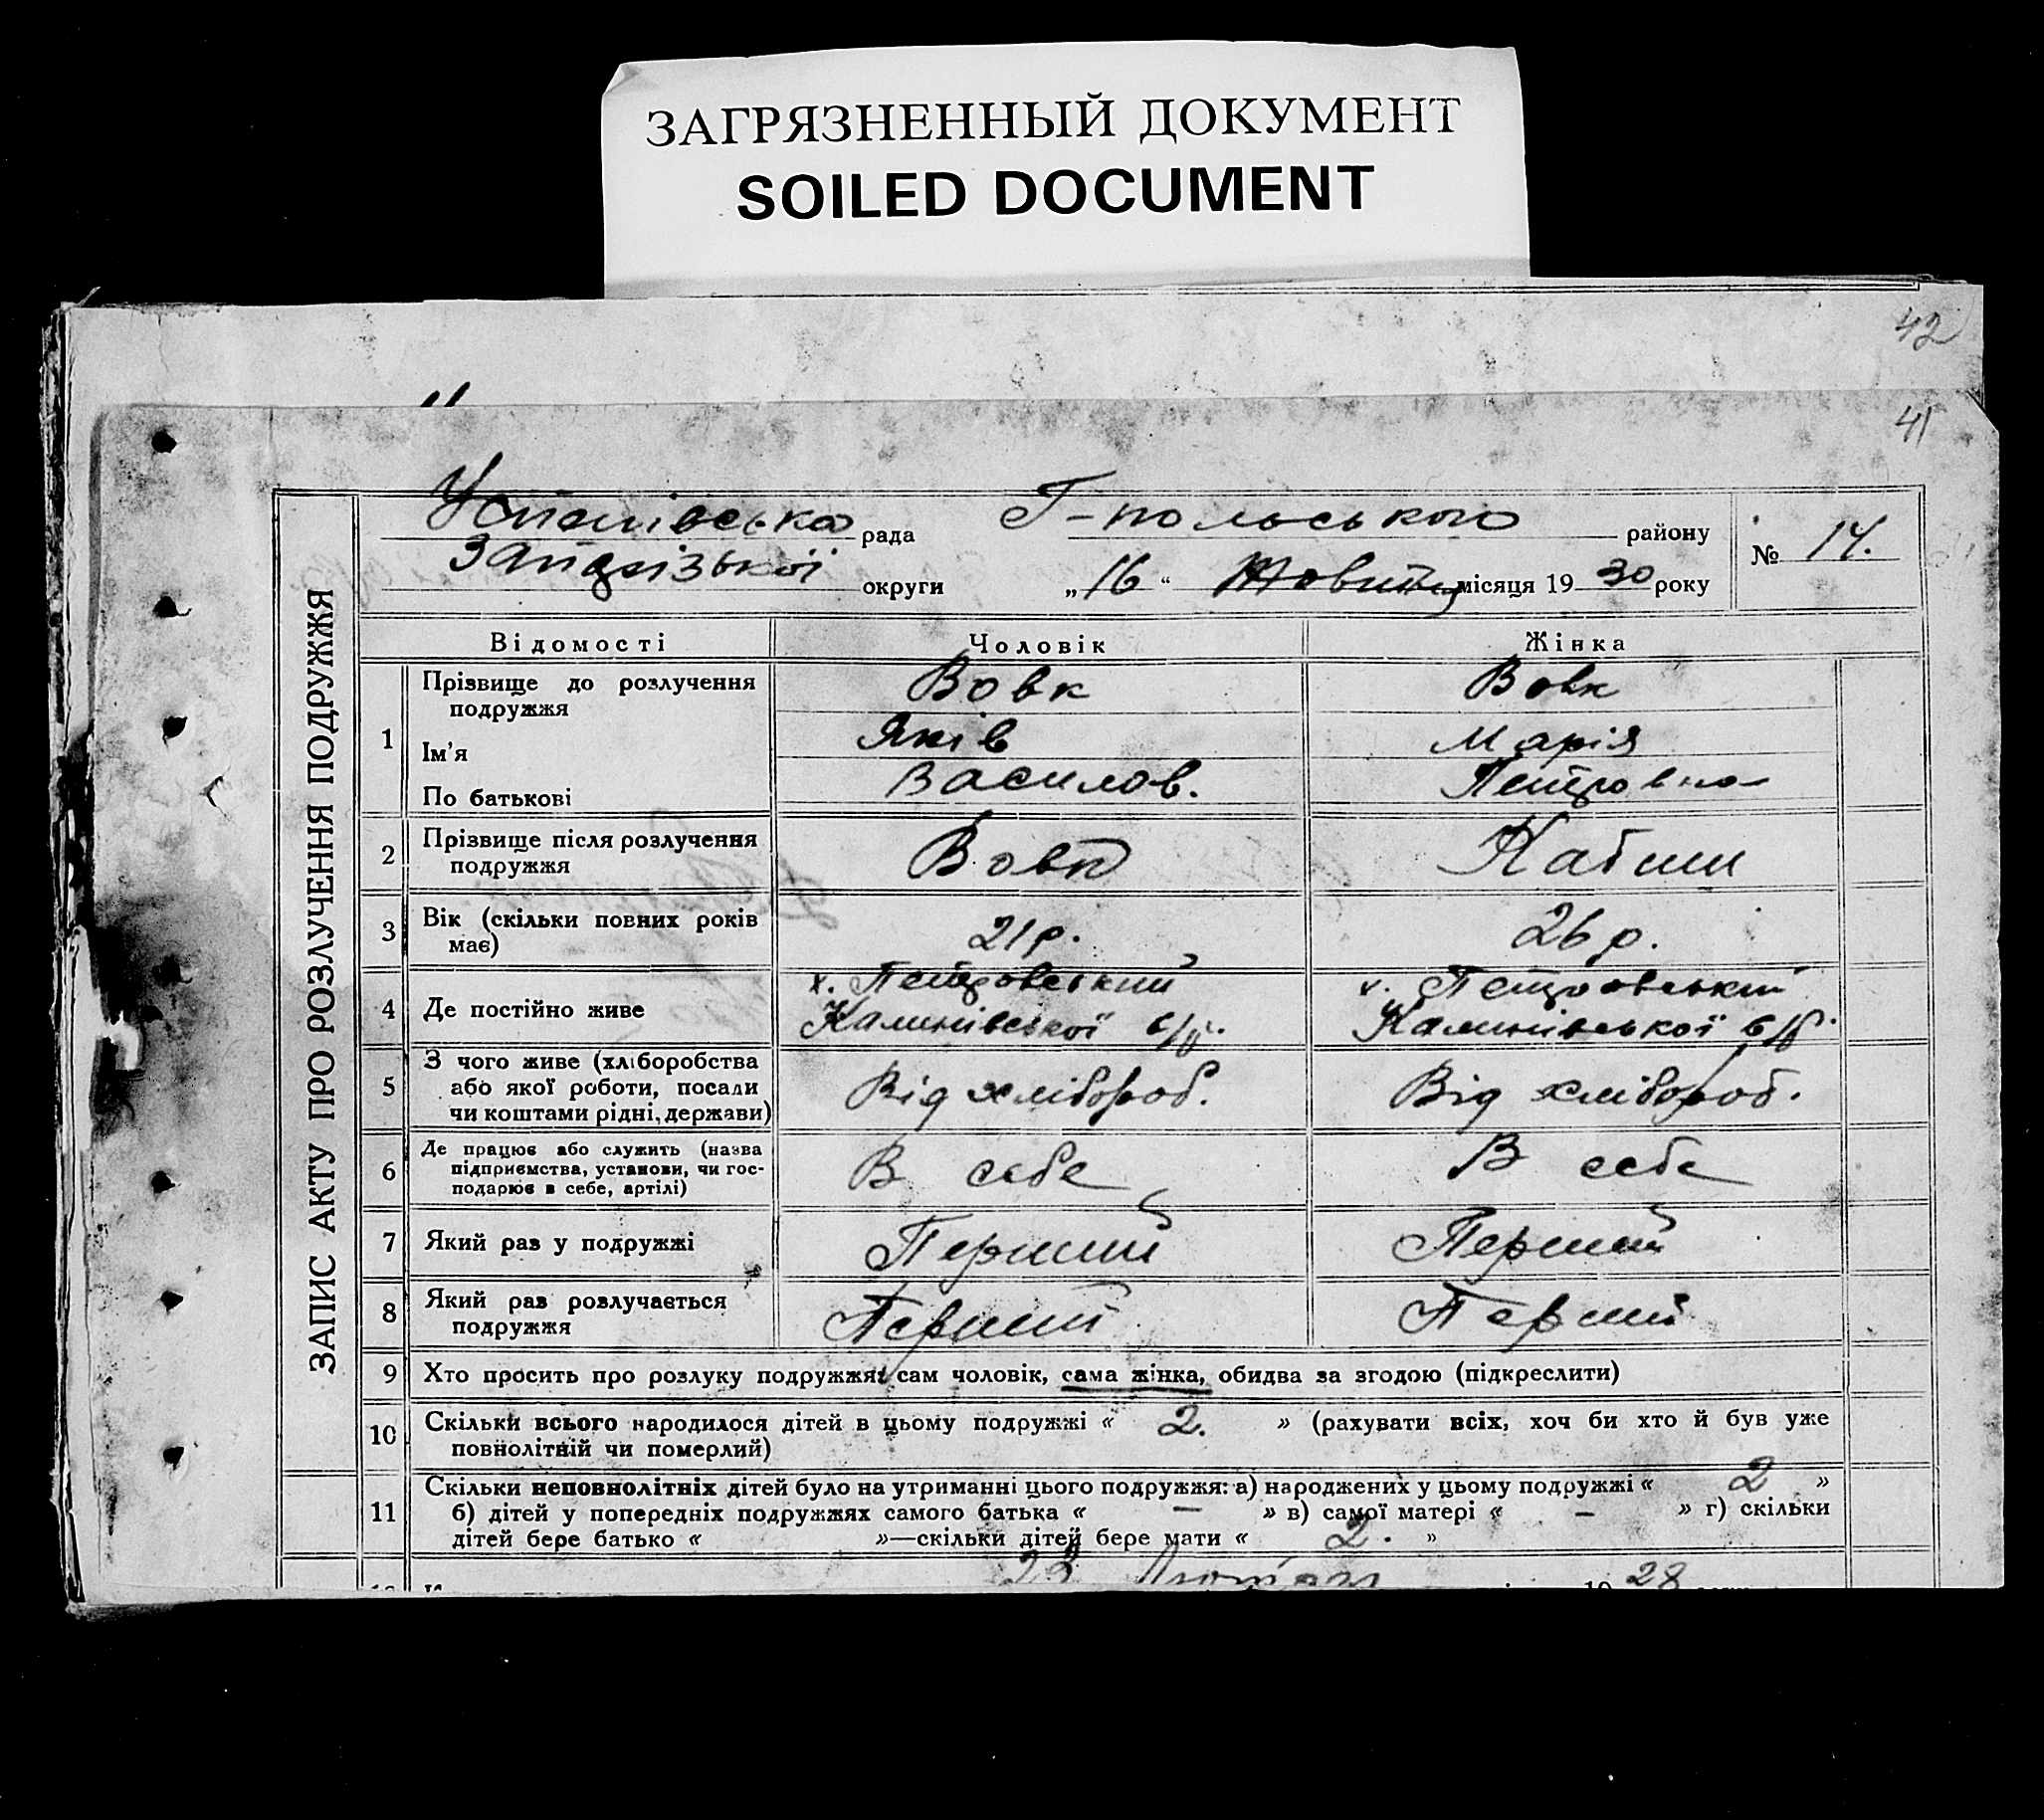 ЗАГРЯЗНЕННЫЙ ДОКУМЕНТ
SOILED DOCUMENT
42
41
ЗАПИС АКТУ ПРО РОЗЛУЧЕННЯ ПОДРУЖЖЯ
Успенівська рада Г-польського району
№ 14.
Запорізької округи „16“ Жовтня місяця 1930 року
Відомості Чоловік Жінка
1 Прізвище до розлучення подружжя Вовк Вовк
Ім'я Яків Марія
По батькові Василов. Петровна
2 Прізвище після розлучення
подружжя Вовк
3 Вік (скільки повних років
має) 21 р. 26 р.
х. Петровський х. Петровський
4 Де постійно живе Калинівської с/р. Калинівської с/р.
5 З чого живе (хліборобства
або якої роботи, посади Від хлібороб. Від хлібороб.
чи коштами рідні, держави)
6 Де працює або служить (назва
підприємства, установи, чи гос- В себе В себе
подарює в себе, артілі)
7 Який раз у подружжі Перший Перший
8 Який раз розлучається
подружжя Перший Перший
9 Хто просить про розлуку подружжя: сам чоловік, сама жінка, обидва за згодою (підкреслити)
10 Скільки всього народилося дітей в цьому подружжі « 2. » (рахувати всіх, хоч би хто й був уже
повнолітній чи померлий)
11 Скільки неповнолітніх дітей було на утриманні цього подружжя: а) народжених у цьому подружжі « 2 »
б) дітей у попередніх подружжях самого батька « — » в) самої матері « — » г) скільки
дітей бере батько « »—скільки дітей бере мати « 2. »
28